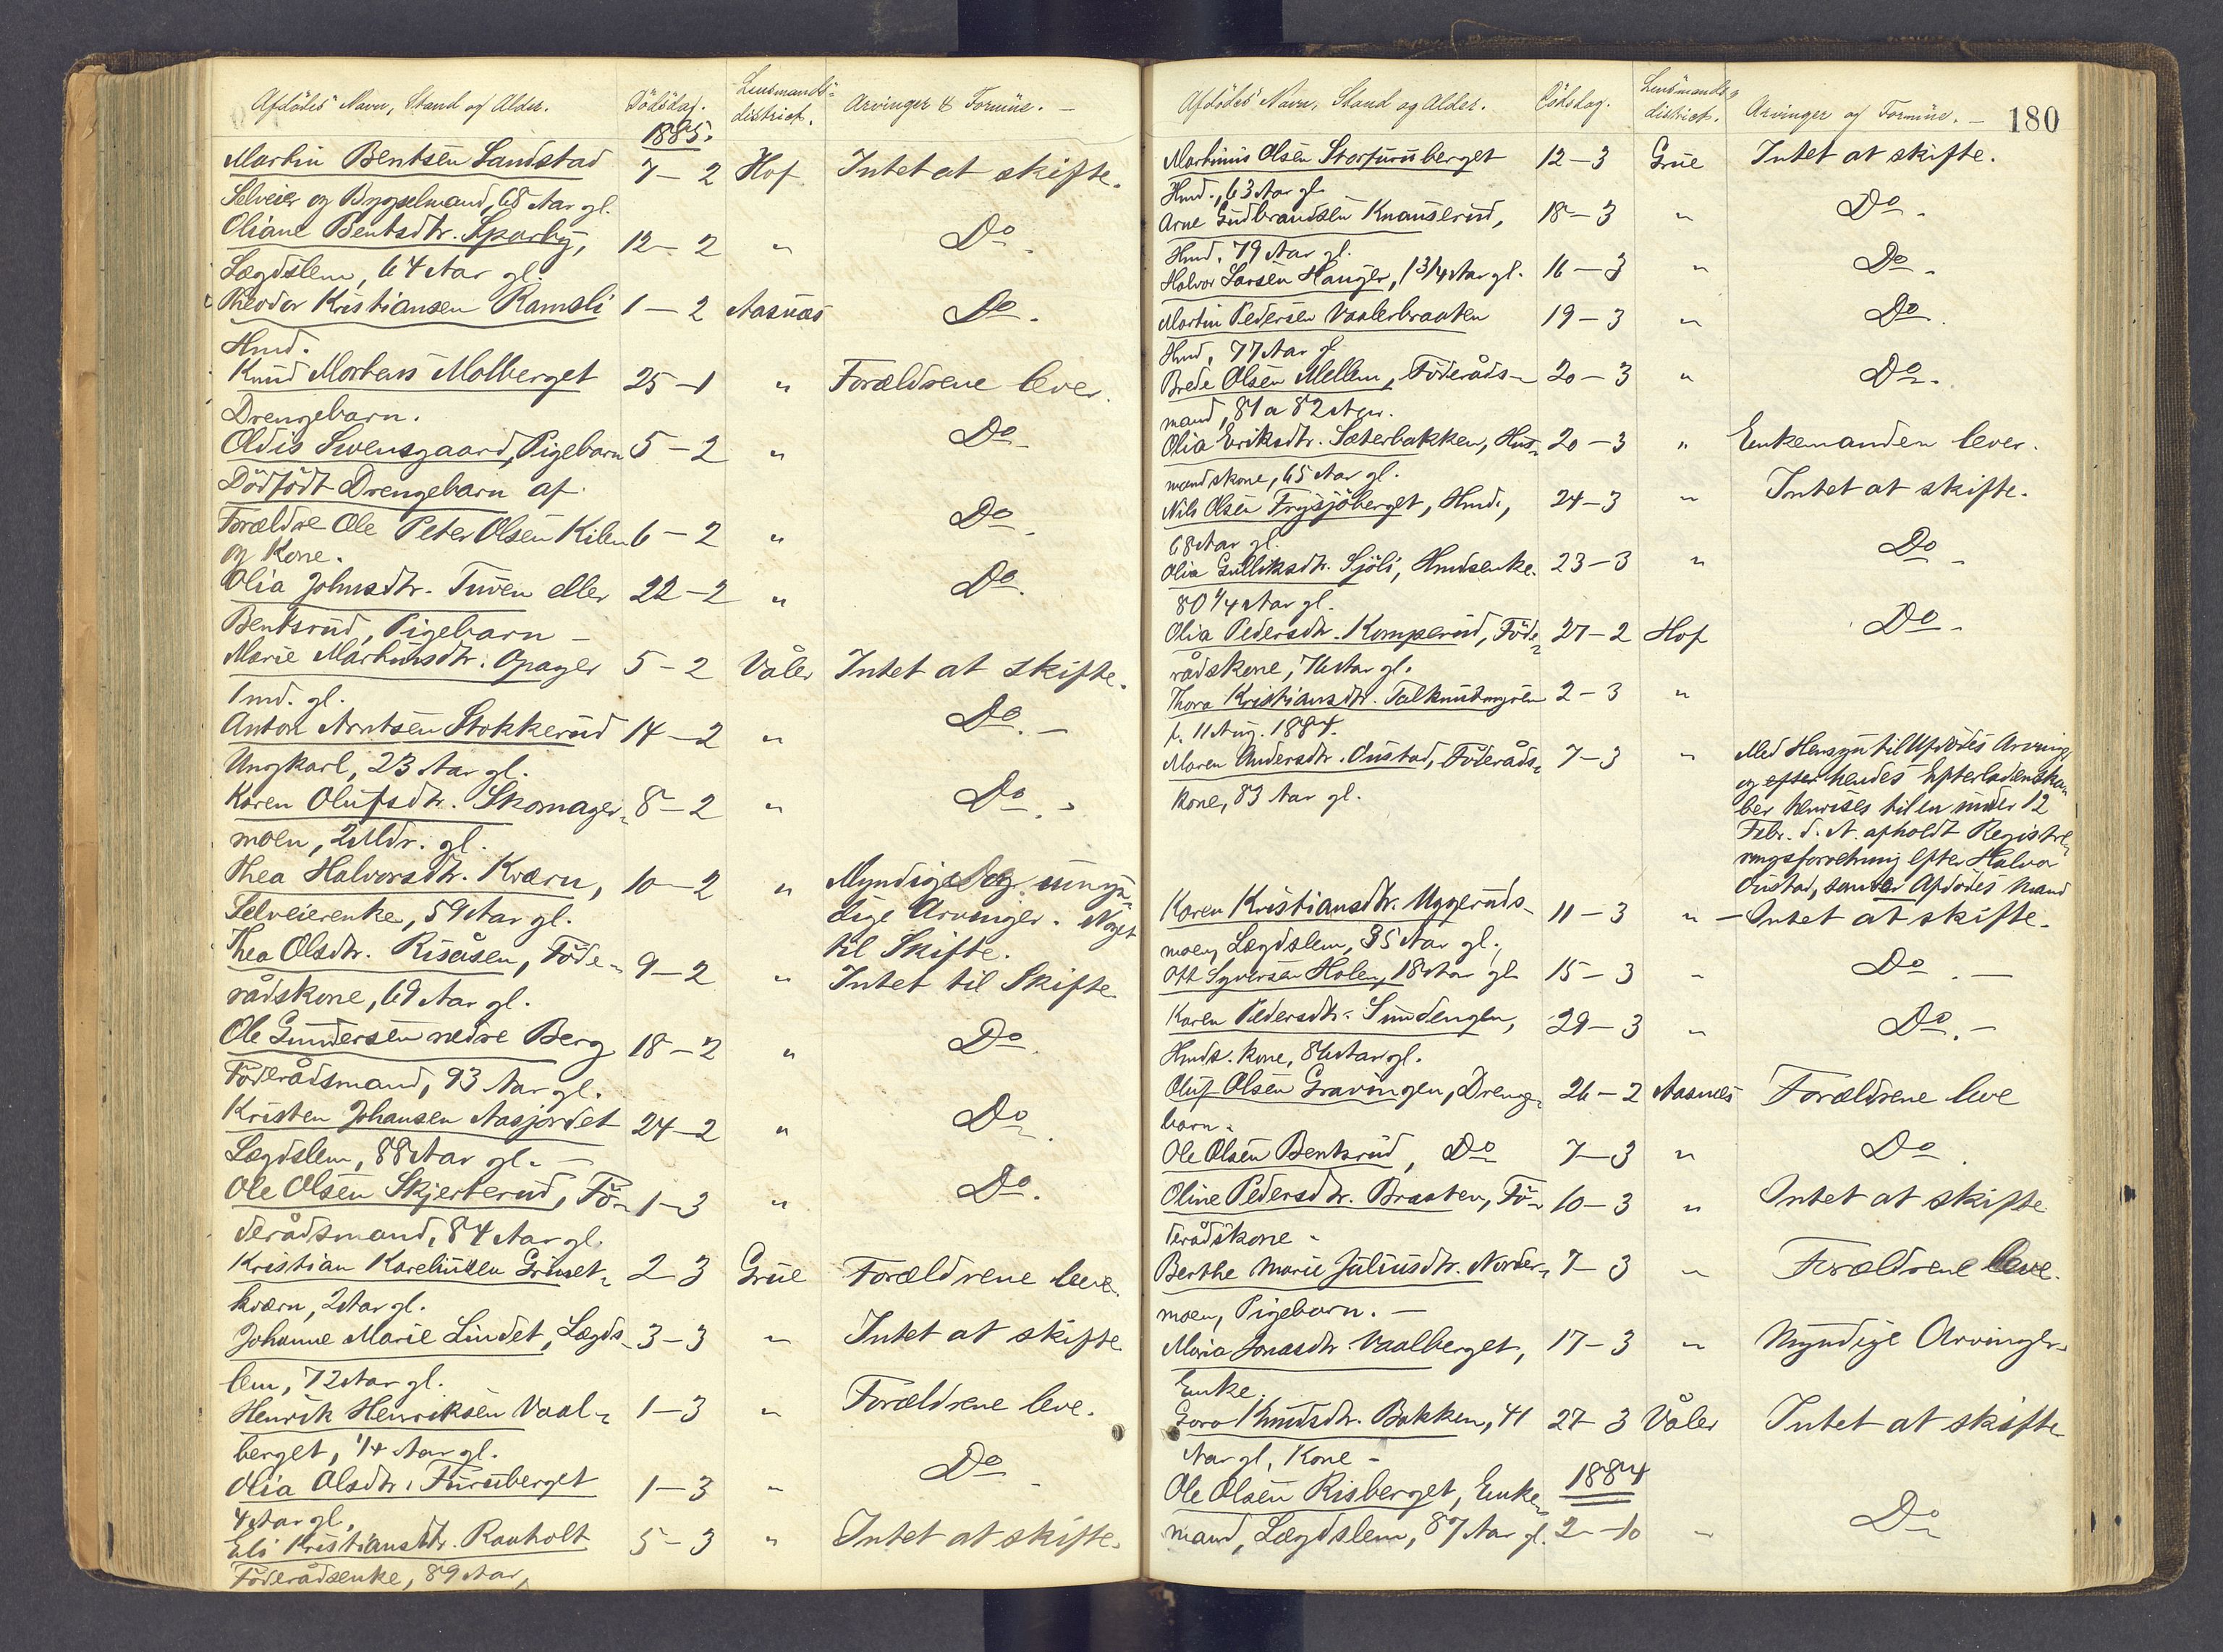 Afdödes Navn, Stand og Alder. Dödsdag. Lensmands- district. Arvinger & Formue. —
1885.
Martin Bentsen Sandstad 7–2 Hof Intet at skifte.
Selveier og Bygselmand, 68 Aar gl.
Oliane Bentsdtr. Sparby, 12–2 " Do.
Lægdslem, 64 Aar gl.
Theodor Kristiansen Ramsli 1–2 Aasnæs Do.
Hmd.
Knud Mortens Molberget 25–1 " Forældrene lever.
Drengebarn.
Oldis Svensgaard, Pigebarn 5–2 " Do
Dödfödt Drengebarn af
Forældre Ole Peter Olsen Kilen 6–2 " Do
og Kone.
Olia Johnsdtr. Tuven eller 22–2 " Do.
Bentsrud, Pigebarn –
Marie Martinsdtr. Opager 5–2 Våler Intet at skifte.
1 md. gl.
Anton Arntsen Stokkerud 14–2 " Do. –
Ungkarl, 23 Aar gl.
Karen Olufsdtr. Skomager- 8–2 " Do.
moen, 2 Mdr. gl.
Thea Halvorsdtr. Kværn, 10–2 " Myndige og umyn-
Selveierenke, 59 Aar gl. dige Arvinger. Noget
til Skifte.
Thea Olsdtr. Risåsen, Föde- 9–2 " Intet til Skifte
rådskone, 69 Aar gl.
Ole Gundersen nedre Berg 18–2 " Do.
Föderådsmand, 93 Aar gl.
Kristen Johansen Aasjordet 24–2 " Do.
Lægdslem, 88 Aar gl. –
Ole Olsen Skjerberud, Fö- 1–3 " Do.
derådsmand, 84 Aar gl.
Kristian Kareliusen Gruset- 2–3 Grue Forældrene leve.
kværn, 2 Aar gl.
Johanne Marie Lindet, Lægds- 3–3 " Intet at skifte
lem, 72 Aar gl.
Henrik Henriksen Vaal- 1–3 " Forældrene leve.
berget, 1/4 Aar gl.
Olia Olsdtr. Furuberget 1–3 " Do
4 Aar gl.
Eli Kristiansdtr. Rauholt 5–3 " Intet at skifte.
Föderådsenke, 89 Aar,
Afdödes Navn, Stand og Alder. Dödsdag. Lensmands- district. Arvinger og Formue. — 180
Martinus Olsen Storfuruberget 12–3 Grue Intet at skifte.
Hmd., 63 Aar gl.
Arne Gudbrandsen Knauserud, 18–3 " Do.
Hmd. 79 Aar gl.
Halvor Larsen Hauger, 1 3/4 Aar gl. 16–3 " Do.
Martin Pedersen Vaalerbraaten 19–3 " Do.
Hmd, 77 Aar gl.
Brede Olsen Mellem, Föderåds- 20–3 " Do.
mand, 81 a 82 Aar.
Olia Eriksdtr. Sæterbakken, Hus- 20–3 " Enkemanden lever.
mandskone, 65 Aar gl.
Nils Olsen Frysjöberget, Hmd., 24–3 " Intet at skifte.
68 Aar gl.
Olia Gulliksdtr. Sjöli, Hmdsenke. 23–3 " Do
80 1/4 Aar gl.
Olia Pedersdtr. Komperud, Föde- 27–2 Hof Do
rådskone, 76 Aar gl.
Thora Kristiansdtr. Falknutmyren 2–3 "
f. 11 Aug. 1884.
Maren Andersdtr. Oustad, Föderåds- 7–3 " Med Hensyn til Afdödes Arving
kone, 83 Aar gl. og efter hendes Efterladenska-
ber henvises til en under 12
Febr. d. A. afholdt Registre-
ringsforretning efter Halvor
Oustad, Afdödes Mand
Karen Kristiansdtr. Uggeruds- 11–3 " – Intet at skifte.
moen, Lægdslem, 35 Aar gl.
Ole Syversen Holen, 18 Aar gl. 15–3 " Do. –
Karen Pedersdtr. Sundengen, 29–3 " Do. –
Hmds. kone, 86 Aar gl.
Oluf Olsen Gravingen, Drenge- 26–2 Aasnæs Forældrene leve
barn.
Ole Olsen Bentsrud, Do 7–3 " Do.
Oline Pedersdtr. Braaten, Fö- 10–3 " Intet at skifte
derådskone –
Berthe Marie Juliusdtr. Norder- 7–3 " Forældrene leve.
moen, Pigebarn. –
Maria Jonasdtr. Vaalberget, 17–3 " Myndige Arvinger.
Enke.
Goro Knudsdtr. Bakken, 41 27–3 Våler Intet at skifte
Aar gl, Kone –
1884
Ole Olsen Risberget, Enke-
mand, Lægdslem, 87 Aar gl. 2–10 " Do